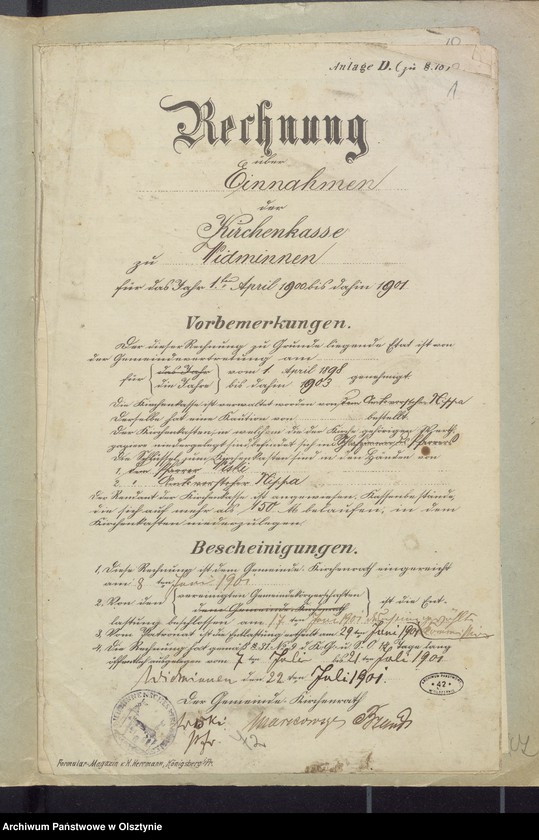 Anlage D. (zu §. 10.)
1
Rechnung
über
Einnahmen
der
Kirchenkasse
zu Widminnen
für das Jahr 1ten April 1900 bis dahin 1901
Vorbemerkungen.
Der dieser Rechnung zu Grunde liegende Etat ist von
der Gemeindevertretung am
für das Jahr vom 1 April 1898
die Jahre bis dahin 1903 genehmigt.
Die Kirchenkasse ist verwaltet worden von dem Amtsvorsteher Nippa
Derselbe hat eine Kaution von bestellt.
Der Kirchenkasten, in welchem die der Kasse gehörigen Wert-
papiere niedergelegt sind, befindet sich im
Die Schlüssel zum Kirchenkasten sind in den Händen von
1, dem Pfarrer
2, " Amtsvorsteher Nippa
Der Rendant der Kirchenkasse ist angewiesen, Kassenbestände,
die sich auf mehr als 150 M. belaufen, in dem
Kirchenkasten niederzulegen.
Bescheinigungen.
1. Diese Rechnung ist dem Gemeinde-Kirchenrath eingereicht
am 8 ten Juni 1901
2. Von den vereinigten Gemeindekörperschaften
dem Gemeinde-Kirchenrath ist die Ent-
lastung beschlossen am 17 ten Juni 1901
3. Vom Patronat ist die Entlastung ertheilt am 29 ten Juni 1901
4. Die Rechnung hat gemäß §. 31. No 9 d. K. G. u. S. O. 14 Tage lang
öffentlich ausgelegen vom 7 ten Juli bis 21 ten Juli 1901.
Widminnen den 22 ten Juli 1901.
Der Gemeinde-Kirchenrath
42
Formular-Magazin v. H. Herrmann, Königsberg i/Pr.
Archiwum Państwowe w Olsztynie